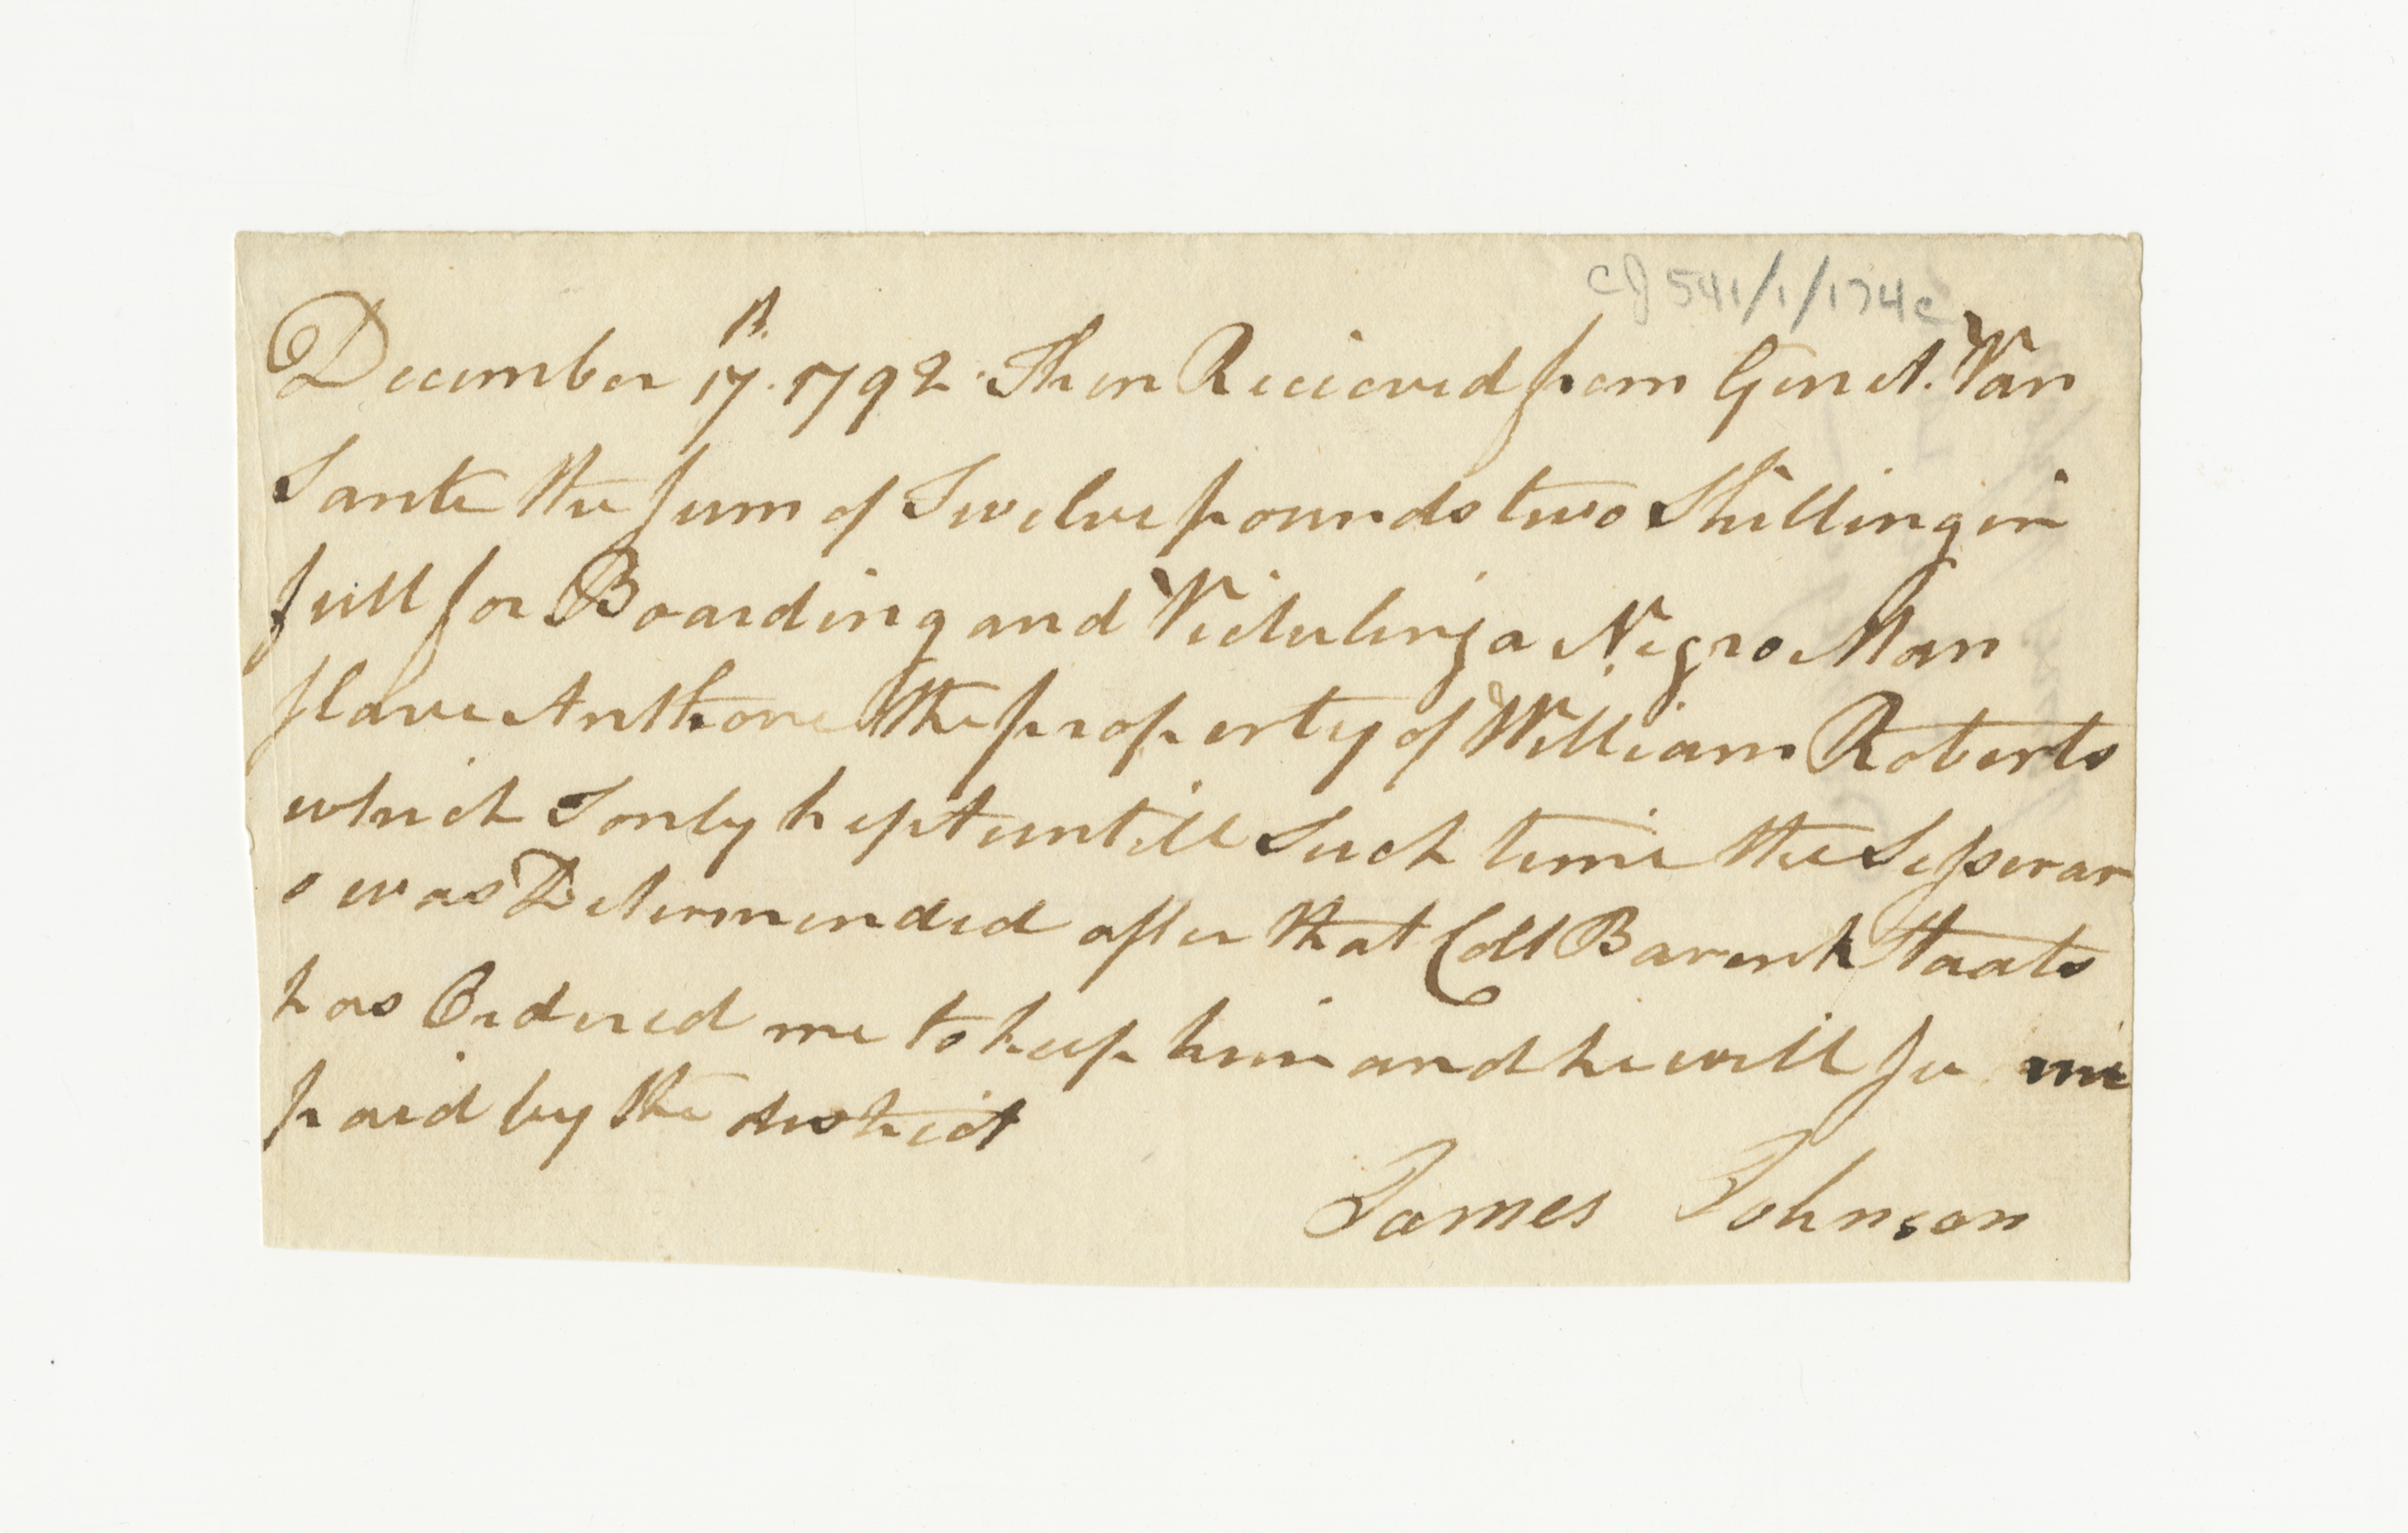 CJ 541/1/174c
December 17th. 1792. Then Recieved from Gen A. Van
Sante the Sum of Twelve pounds two Shilling in
full for Boarding and Victuling a Negro Man
slave Anthone the property of William Roberts
which I only kept untill Such time the
was Determended after that Coll Barent Staats
has Ordered me to keep him and he will se me
paid by the district
James Johnson